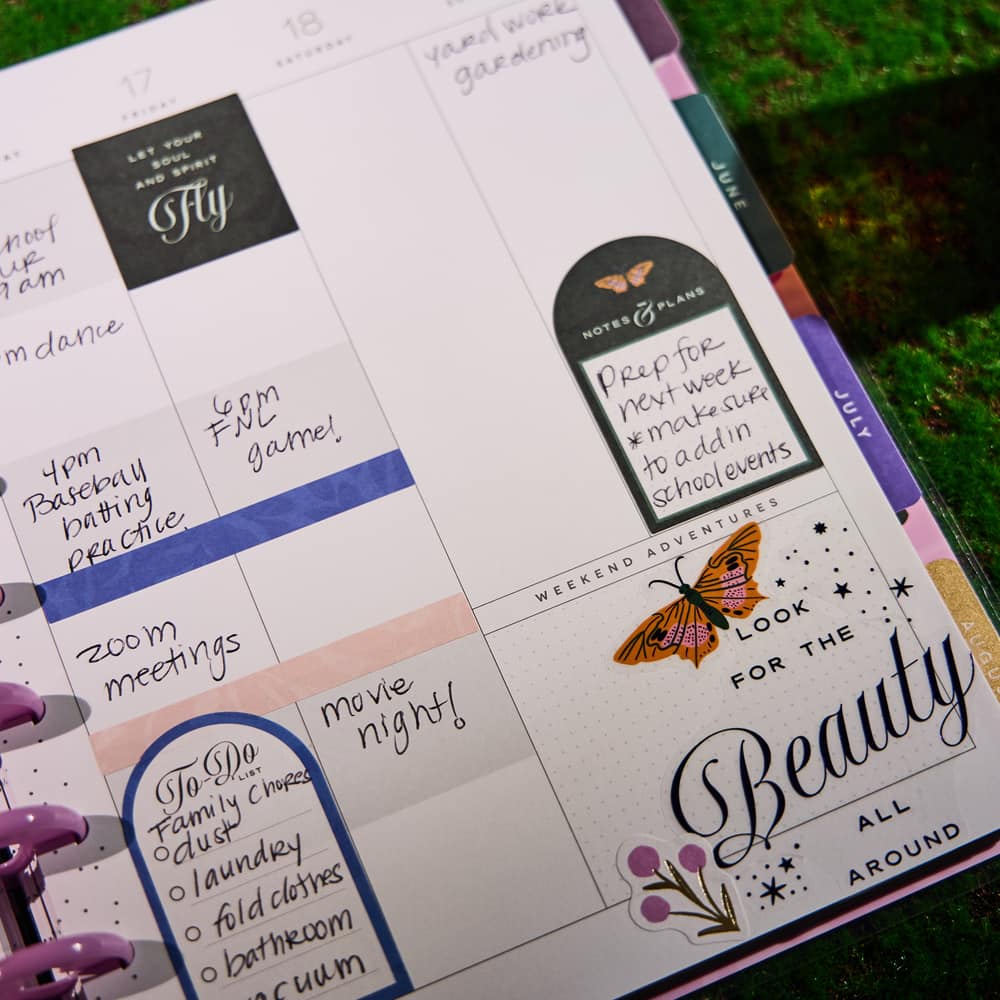 17
FRIDAY
18
SATURDAY
yard work
gardening
LET YOUR
SOUL
AND SPIRIT
Fly
9am
dance
4pm
Basebay
batting
practice
6pm
FNL
game!
NOTES & PLANS
Prep for
next week
*make sure
to add in
school events
zoom
meetings
movie
night!
To-Do
LIST
Family Chores
dust
laundry
fold clothes
bathroom
WEEKEND ADVENTURES
LOOK
FOR THE
Beauty
ALL
AROUND
JUNE
JULY